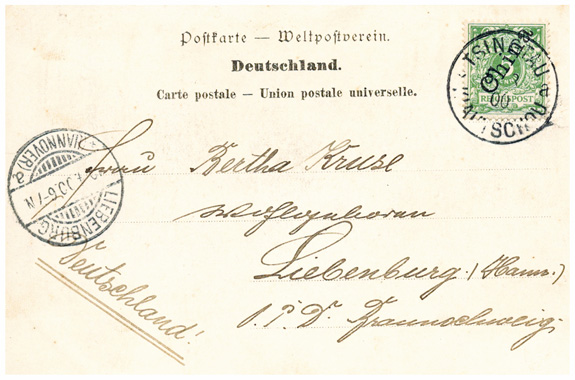 Postkarte — Weltpostverein.
Deutschland.
Carte postale — Union postale universelle.
TSINTAU
China
5
00
REICHSPOST
Frau Bertha Kruse
Wohlgeboren
Liebenburg. (Hann.)
O.P.D. Braunschweig.
Deutschland!
LIEBENBURG
(HANNOVER) a
6-7N